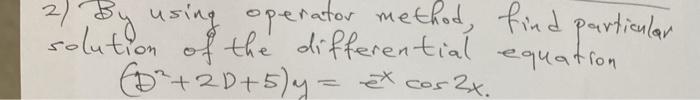 2) By using operator method, find particular
solution of the differential equation
(D²+2D+5)y = e⁻ˣ cos2x.